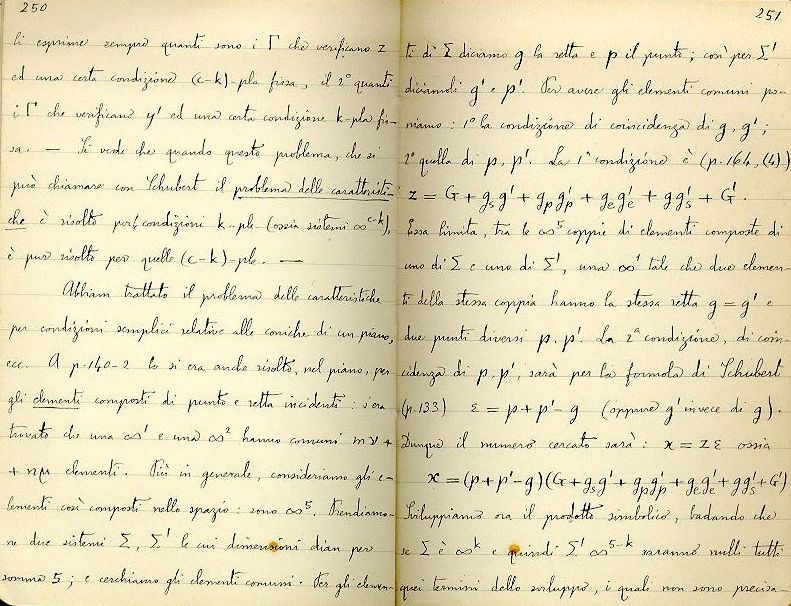 250
li esprime sempre quanti sono i Γ che verificano z
ed una certa condizione (c-k)-pla fissa, il 2° quanti
i Γ che verificano y' ed una certa condizione k-pla fis-
sa. — Si vede che quando questo problema, che si
può chiamare con Schubert il problema delle caratteristi-
che è risolto per condizioni k-ple (ossia sistemi ∞^{c-k}),
è pur risolto per quelle (c-k)-ple. —
Abbiam trattato il problema delle caratteristiche
per condizioni semplici relative alle coniche di un piano,
ecc. A p. 140-2 lo si era anche risolto, nel piano, per
gli elementi composti di punto e retta incidenti: s'era
trovato che una ∞¹ e una ∞² hanno comuni mν +
+ nμ elementi. Più in generale, consideriamo gli e-
lementi così composti nello spazio: sono ∞⁵. Prendiamo-
ne due sistemi Σ, Σ' le cui dimensioni dian per
somma 5; e cerchiamo gli elementi comuni. Per gli elemen-
251
ti di Σ diciamo g la retta e p il punto; così per Σ'
diciamoli g' e p'. Per avere gli elementi comuni po-
niamo: 1° la condizione di coincidenza di g, g';
2° quella di p, p'. La 1ª condizione è (p. 164, (4))
z = G + g_s g' + g_p g'_p + g_e g'_e + g g'_s + G'.
Essa limita, tra le ∞⁵ coppie di elementi composte di
uno di Σ e uno di Σ', una ∞¹ tale che due elemen-
ti della stessa coppia hanno la stessa retta g = g' e
due punti diversi p, p'. La 2ª condizione, di coin-
cidenza di p, p', sarà per la formola di Schubert
(p. 133) ε = p + p' - g (oppure g' invece di g).
Dunque il numero cercato sarà: x = zε ossia
x = (p + p' - g)(G + g_s g' + g_p g'_p + g_e g'_e + g g'_s + G')
Sviluppiamo ora il prodotto simbolico, badando che
se Σ è ∞^k e quindi Σ' ∞^{5-k} saranno nulli tutti
quei termini dello sviluppo, i quali non sono precisa-